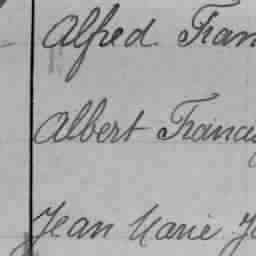 Alfred Fran
Albert Franci
Jean Marie J